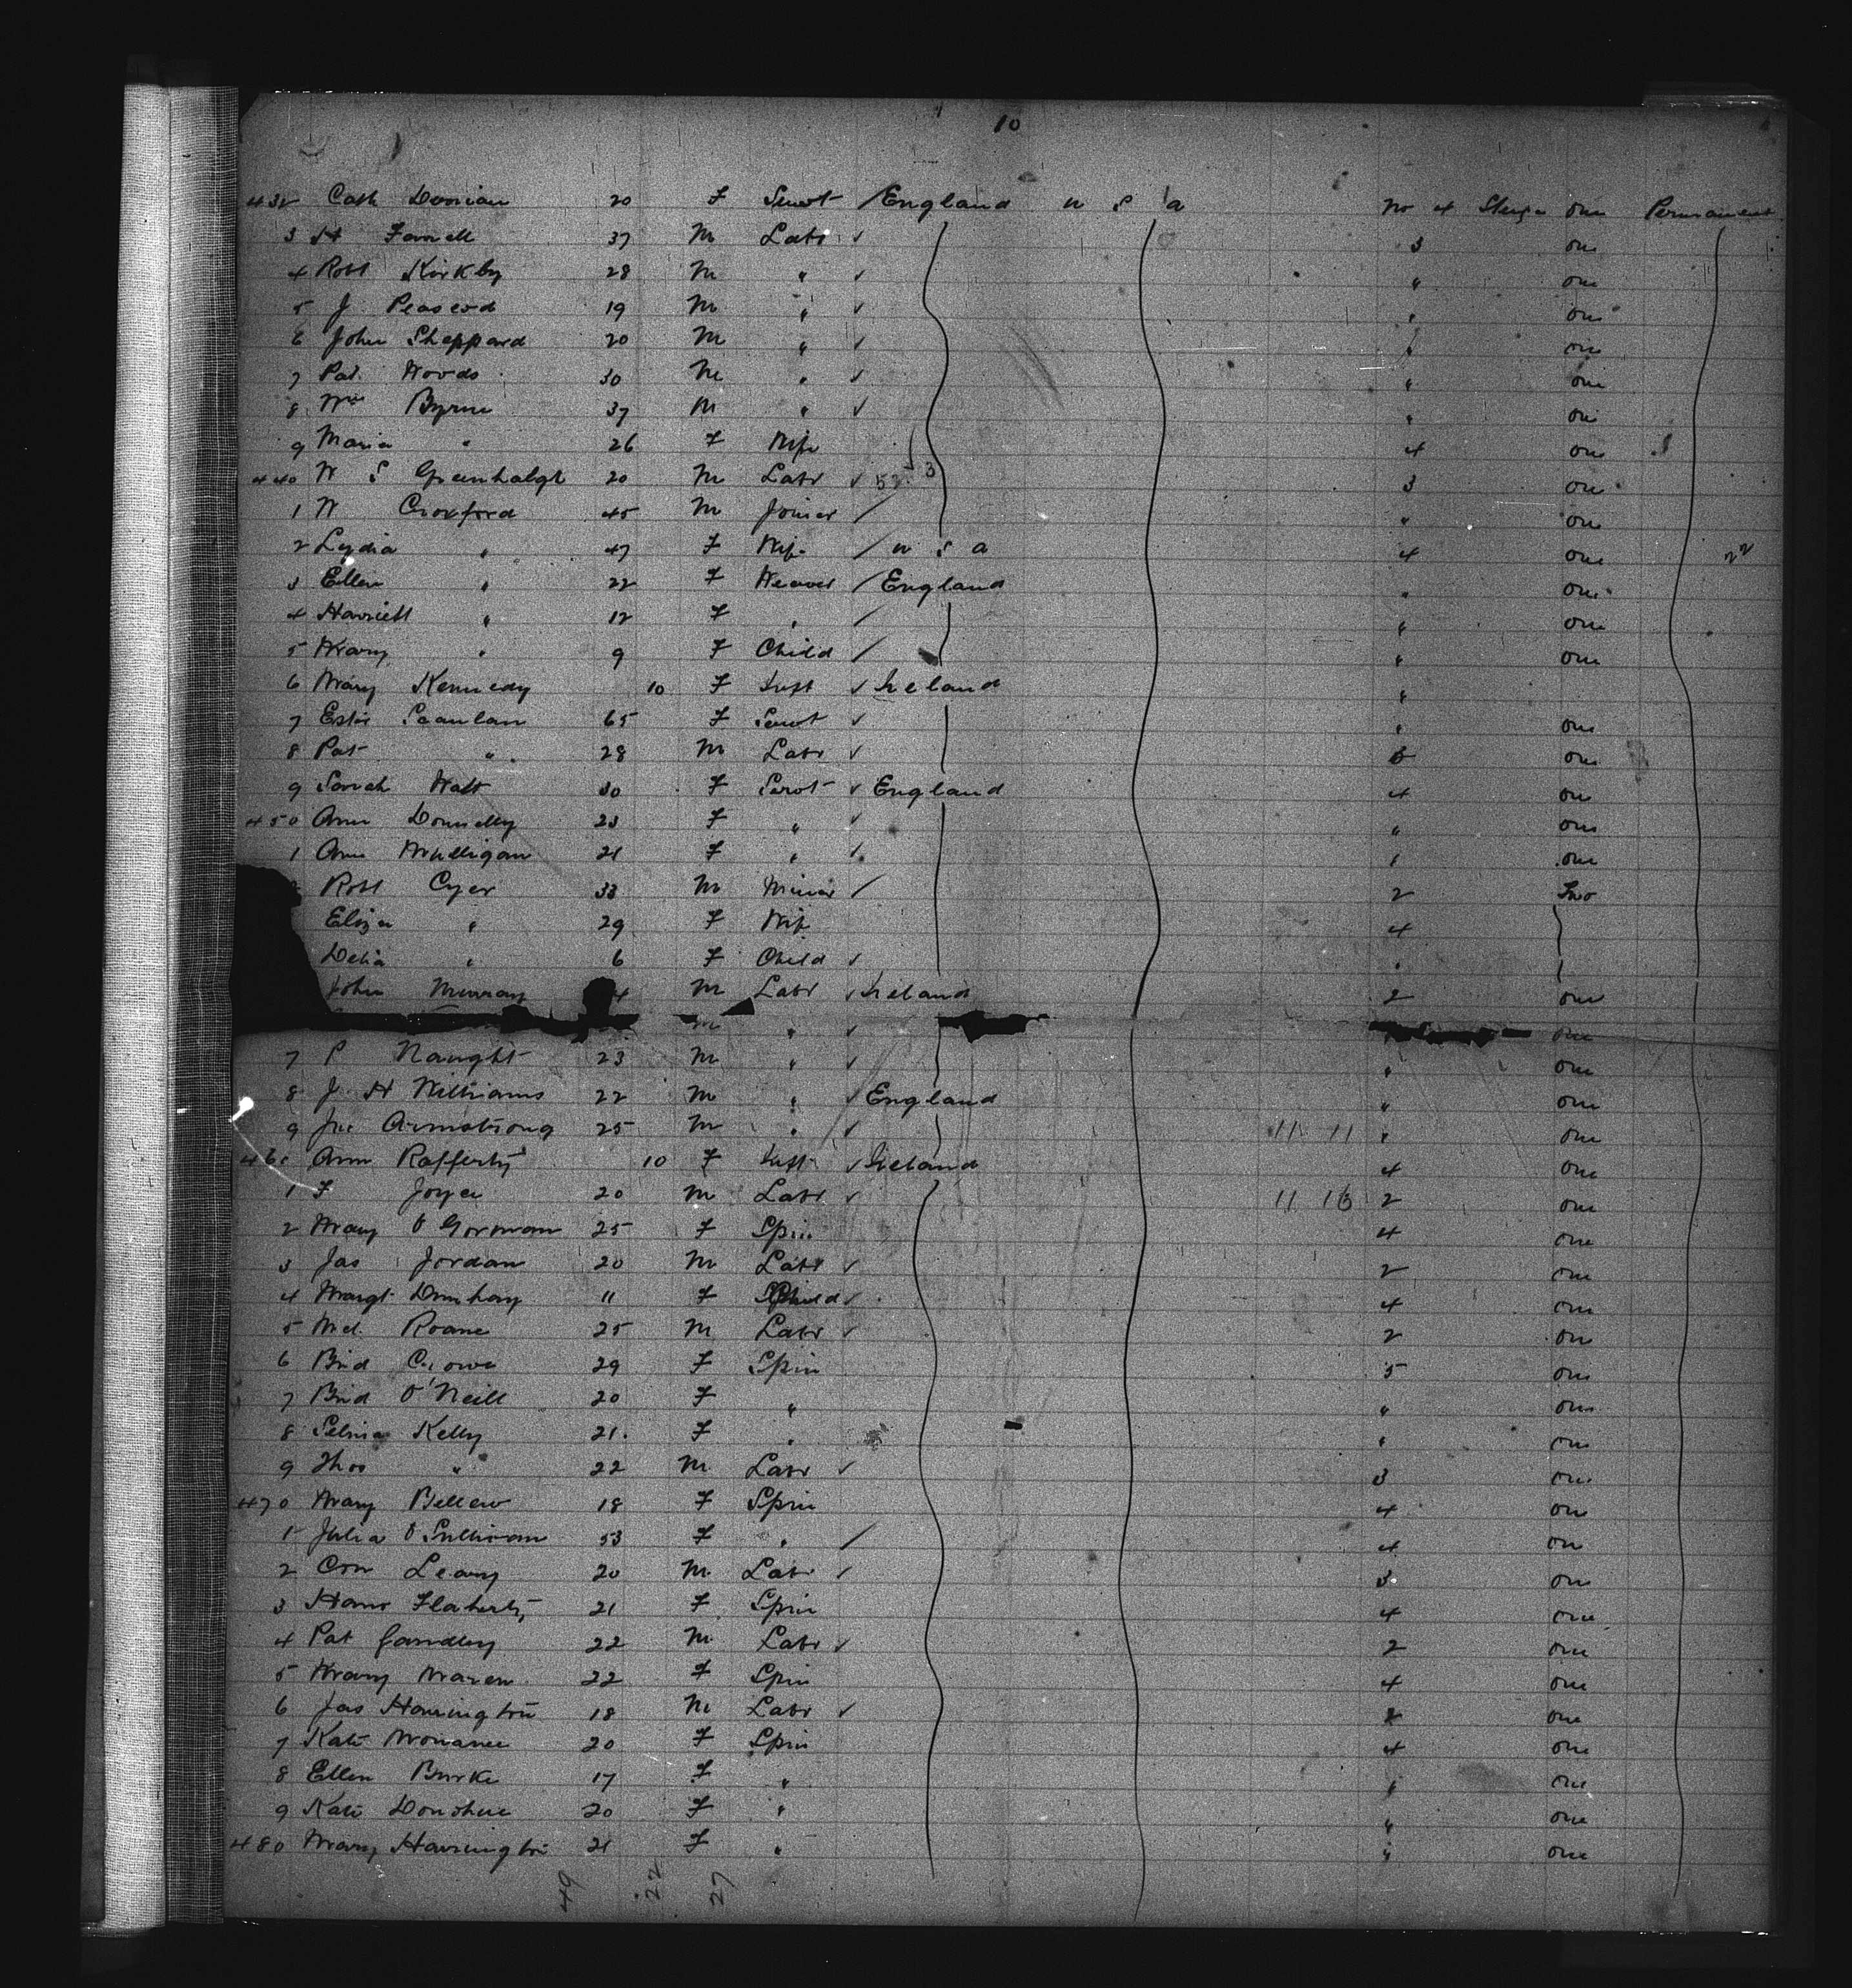 10
432 Cath Dornian 20 F Servt / England U S A No 4 Steerge one Permanent
3 H Farrell 37 M Labr ✓ 3 one
4 Robt Kirkby 28 M " ✓ " one
5 J. Peascod 19 M " ✓ " one
6 John Sheppard 20 M " ✓ " one
7 Pat. Woods 30 M " ✓ " one
8 Wm Byrne 37 M " ✓ " one
9 Maria " 26 F Wife 4 one
440 W S Greenhalgh 20 M Labr ✓ 3 one
1 W Croxford 45 M Joiner / " one
2 Lydia " 47 F Wife / U S A 4 one 22
3 Ellen " 22 F Weaver / England " one
4 Harriett " 12 F " / " one
5 Mary " 9 F Child / " one
6 Mary Kennedy 10 F Inft ✓ Ireland "
7 Scanlan 65 F Servt ✓ " one
8 Pat " 28 M Labr ✓ 3 one
9 Sarah Watt 30 F Servt ✓ England 4 one
450 Ann Donnelly 23 F " ✓ " one
1 Ann Mulligan 21 F " / " one
Robt Cyer 33 M Miner / 2 Two
Eliza " 29 F Wife 4
Delia " 6 F Child ✓ "
John Murray 4 M Labr ✓ Ireland 2 one
M " ✓ one
7 P Naught 23 M " ✓ " one
8 J. H Williams 22 M " ✓ England " one
9 Jno Armstrong 25 M " ✓ 11 11 " one
460 Ann Rafferty 10 F Inft ✓ Ireland 4 one
1 F Joyce 20 M Labr ✓ 11 13 2 one
2 Mary O Gorman 25 F Spin 4 one
3 Jas Jordan 20 M Labr ✓ 2 one
4 Margt 11 F Child ✓ 4 one
5 Mcl. Roane 25 M Labr ✓ 2 one
6 Brid Crowe 29 F Spin 5 one
7 Brid O'Neill 20 F " " one
8 Selina Kelly 21. F " " one
9 Thos " 22 M Labr ✓ 3 one
470 Mary Bellew 18 F Spin 4 one
1 Julia O Sullivan 53 F " / 4 one
2 Con Leary 20 M Labr ✓ 3 one
3 Hanr Flaherty 21 F Spin 4 one
4 Pat Gandley 22 M Labr ✓ 2 one
5 Mary 22 F Spin 4 one
6 Jas Harrington 18 M Labr ✓ 2 one
7 Kate 20 F Spin 4 one
8 Ellen Burke 17 F " " one
9 Kate Donohue 20 F " " one
480 Mary Harrington 21 F " " one
49 22 27